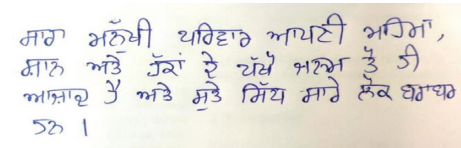 ਸਾਰਾ ਮਨੁੱਖੀ ਪਰਿਵਾਰ ਆਪਣੀ ਮਹਿਮਾ,
ਸ਼ਾਨ ਅਤੇ ਹੱਕਾਂ ਦੇ ਪੱਖੋਂ ਜਨਮ ਤੋਂ ਹੀ
ਆਜ਼ਾਦ ਹੈ ਅਤੇ ਸੁਤੇ ਸਿੱਧ ਸਾਰੇ ਲੋਕ ਬਰਾਬਰ
ਹਨ ।